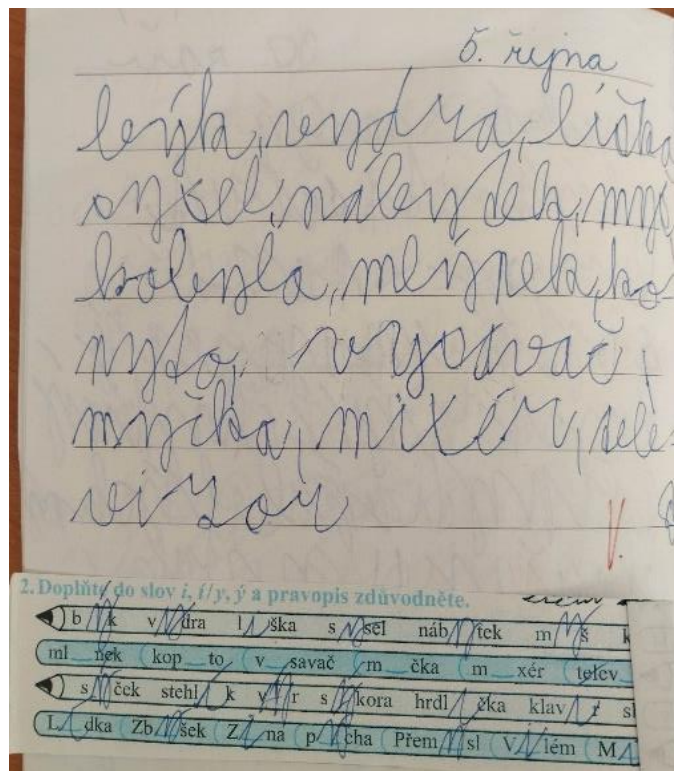 5. října
býk, vydra, liška
sysel, nábytek, myš
kobyla, mlýnek, ko-
pyto, vysavač,
myčka, mixér, tele-
vizor
V.
2. Doplňte do slov i, í/y, ý a pravopis zdůvodněte.
býk vydra liška sysel nábytek myš k
ml_nek kop_to v_savač m_čka m_xér telev_
sýček stehlík výr sýkora hrdlička klavír sl
Lidka Zbyšek Zina pýcha Přemysl Vilém Mi